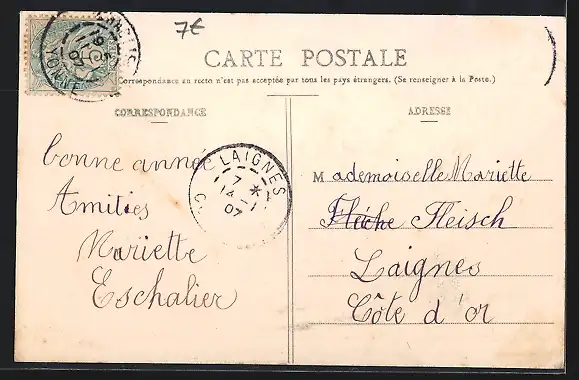 7€
YONNE
CARTE POSTALE
Correspondance au recto n'est pas acceptée par tous les pays étrangers. (Se renseigner à la Poste.)
CORRESPONDANCE
ADRESSE
bonne année
Amitiés
Mariette
Eschalier
LAIGNES
7 *
14 - 1
07
Mademoiselle Mariette
Flèche Fleisch
Laignes
Côte d'or